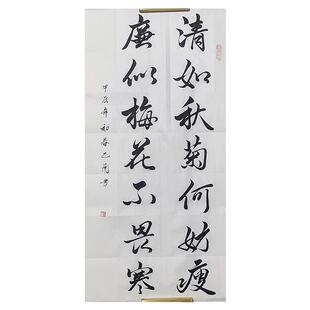 清如秋菊何妨瘦
廉似梅花不畏寒
甲辰年初春乙蘭書